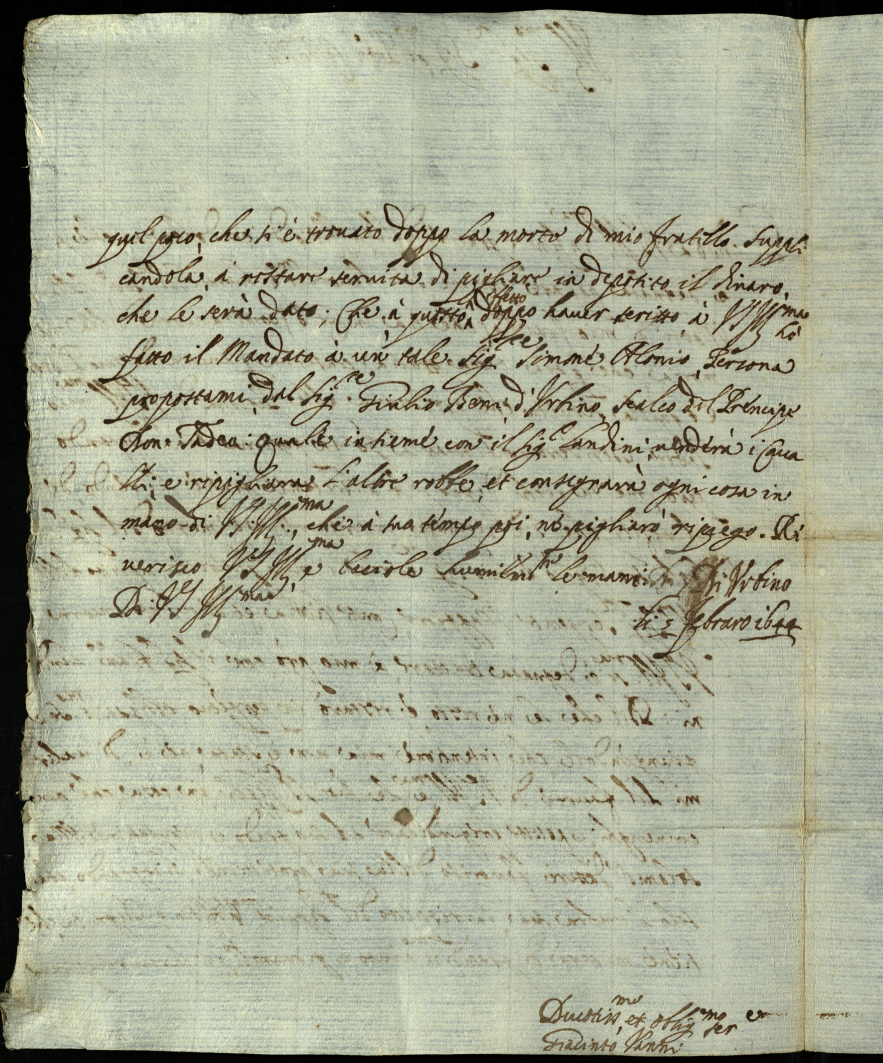 quel poco, che si è trovato doppo la morte di mio fratello. Suppli
candola, a restare servita di pigliare in deposito il dinaro,
che le serà dato; Che à questo effetto doppo haver scritto à VS Ill.ma hò
fatto il Mandato à un tale Sig.re Simone Olonio, Persona
propostami dal Sig.re Giulio Beni d'Urbino, scalco del Prencipe
Don Tadeo: quale insieme con il Sig.r Landini, venderà i Cava
lli; e ripigliarà l'altre robbe, et consegnarà ogni cosa in
mano di VS Ill.ma, che à suo tempo poi, ne pigliarò ripiego. Ri
verisco VS Ill.ma e baciole humilm.te le mani. Di Urbino
Di VS Ill.ma li 3 Febraro 1644
Devotiss.mo et oblig.mo ser.e
Giacinto Vanni